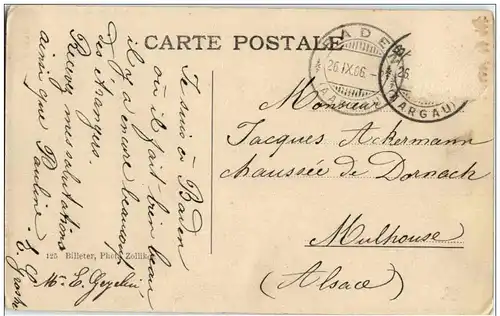 CARTE POSTALE
BADEN
26.IX.06.
(AARGAU)
26.
(AARGAU)
Monsieur
Jacques Ackermann
chaussée de Dornach
Mulhouse
(Alsace)
Je suis à Baden
où il fait bien beau
il y a encore beaucoup
des étrangers.
Recevez mes salutations
ainsi que Pauline
E.
125 Billeter, Phot. Zollik
Mr. E.